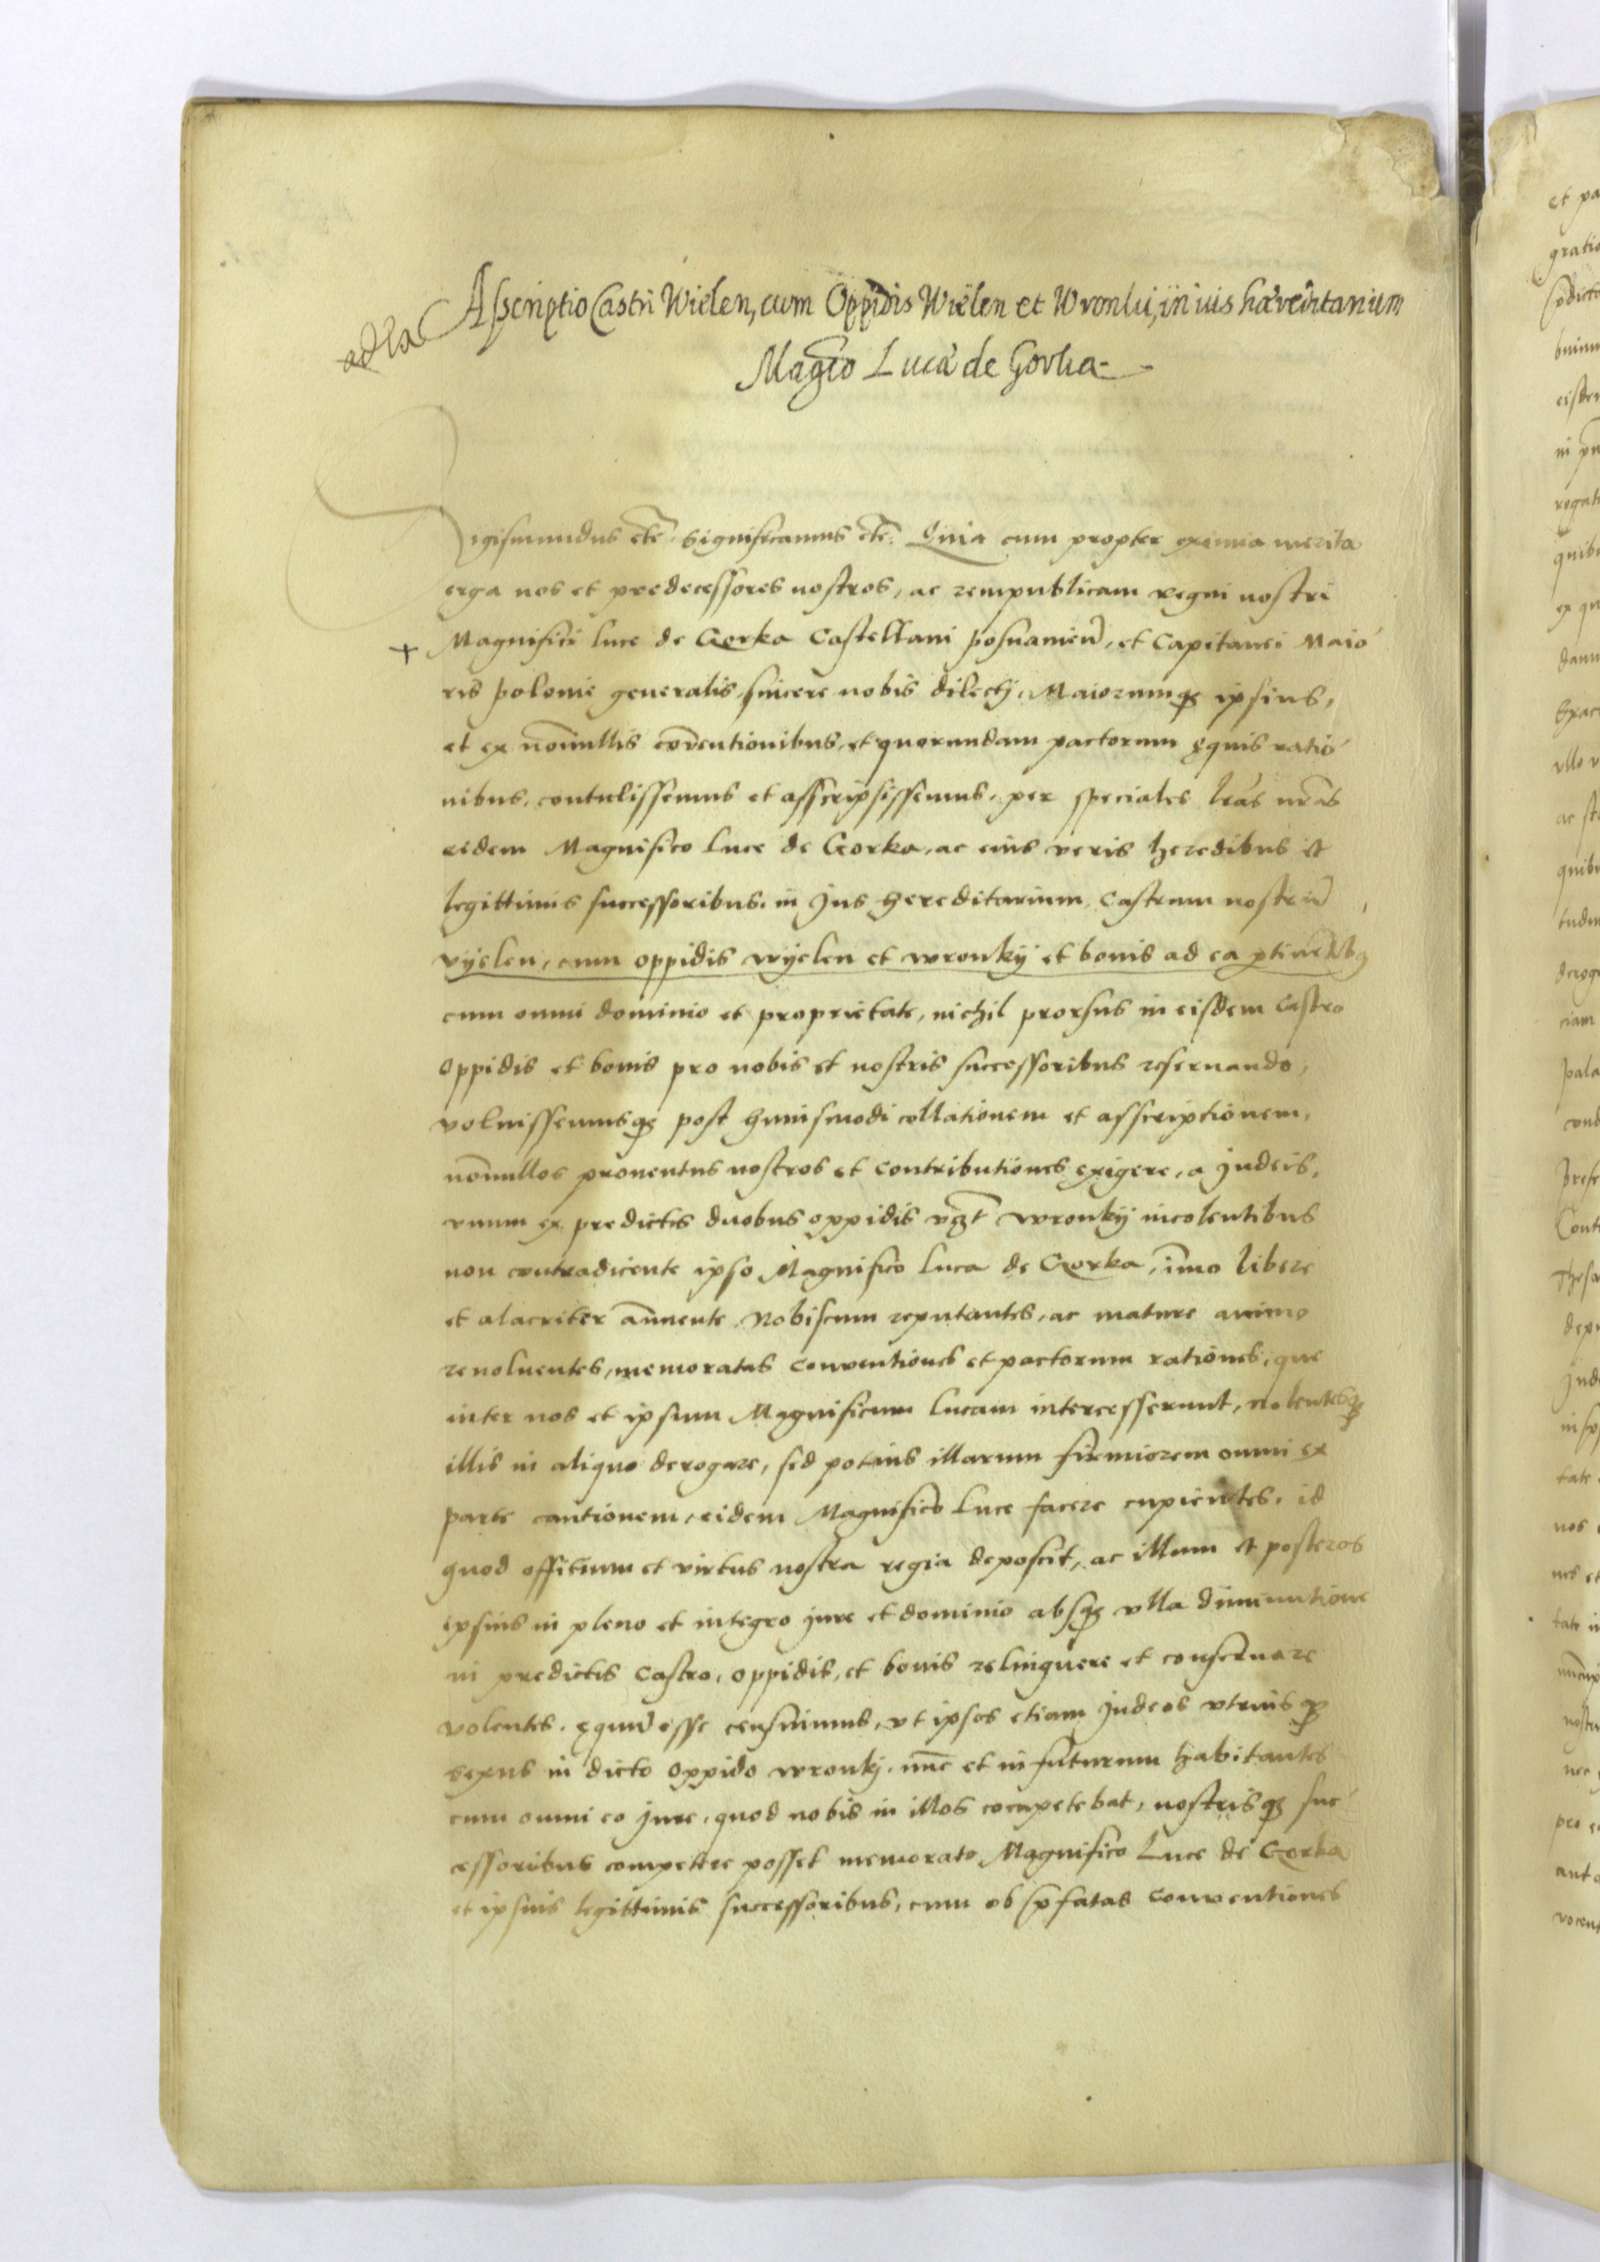 Asscriptio Castri Wielen, cum Oppidis Wielen et Wronki, in ius hæreditarium
Magco Lucæ de Gorka
Sigismundus etc̄ significamus etc̄. Quia cum propter eximia merita
erga nos et predecessores nostros, ac rempublicam regni nostri
+ Magnifici Luce de Gorka Castellani posnanien̄, et Capitanei Maio
ris polonie generalis, sincere nobis dilecti, Maiorumq; ipsius,
et ex nōnullis cōventionibus, et quorundam pactorum equis ratio
nibus, contulissemus et asscripsissemus, per speciales lrās nrās
eidem Magnifico Luce de Gorka, ac eius veris heredibus et
legittimis successoribus, in Jus hereditarium, Castrum nostrū
vyelen, cum oppidis wyelen et wronky et bonis ad ea ptinentib;
cum omni dominio et proprietate, nichil prorsus in eisdem Castro
oppidis et bonis pro nobis et nostris successoribus reseruando,
voluissemusq; post huiusmodi collationem et asscriptionem,
nōnullos prouentus nostros et contributiones exigere, a Judeis,
vnum ex predictis duobus oppidis vzt wronky incolentibus
non contradicente ipso Magnifico Luca de Gorka, im̄o libere
et alacriter an̄uente, Nobiscum reputantes, ac mature animo
reuoluentes, memoratas conventiones et pactorum rationes, que
inter nos et ipsum Magnificum Lucam intercesserunt, nolentesq;
illis in aliquo derogare, sed potius illarum firmiorem omni ex
parte cautionem, eidem Magnifico Luce facere cupientes, id
quod offitium et virtus nostra regia deposcit, ac illum et posteros
ipsius in pleno et integro jure et dominio absq; vlla diminutione
in predictis Castro, oppidis, et bonis relinquere et conseruare
volentes, equū esse censuimus, vt ipsos etiam Judeos vtriusq;
sexus in dicto oppido wronkj, nūc et in futurum habitantes
cum omni eo jure, quod nobis in illos competebat, nostrisq; suc
cessoribus competere posset memorato Magnifico Luce de Gorka
et ipsius legittimis successoribus, cum ob p̄fatas conventiones